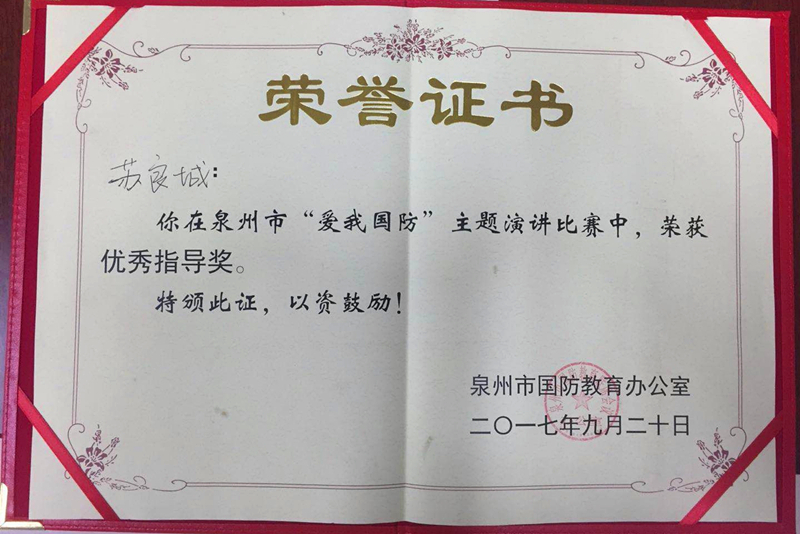 荣誉证书
苏良城：
你在泉州市“爱我国防”主题演讲比赛中，荣获
优秀指导奖。
特颁此证，以资鼓励！
泉州市国防教育办公室
二〇一七年九月二十日